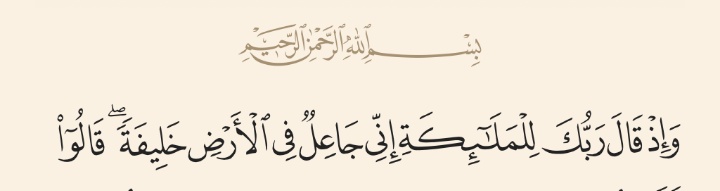 بِسْمِ ٱللَّهِ ٱلرَّحْمَٰنِ ٱلرَّحِيمِ
وَإِذْ قَالَ رَبُّكَ لِلْمَلَـٰٓئِكَةِ إِنِّى جَاعِلٌ فِى ٱلْأَرْضِ خَلِيفَةً ۖ قَالُوٓا۟